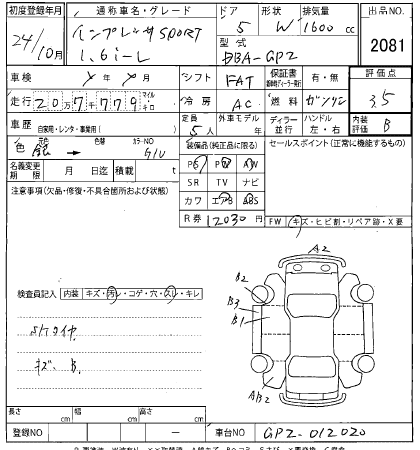 初度登録年月 通称車名・グレード ドア 形状 排気量 出品No.
24/10月 インプレッサ SPORT 1.6i-L 5 W 1600 cc 2081
型式 DBA-GP2
車検 年 月 シフト FAT 保証書 有・無 評価点
走行 207,779 マイル キロ 冷房 AC 燃料 ガソリン 3.5
車歴 自家用・レンタ・事業用( ) 定員 5人 外車モデル年 ディラー 並行 ハンドル 左・右 内装評価 B
色 銀 色替 → カラーNO G1U 装備品(純正品に限る) セールスポイント(正常に機能するもの)
PS PW AW
名義変更期限 月 日迄 積載 t SR TV ナビ
注意事項(欠品・修復・不具合箇所および状態) カワ エアB ABS
R券 12030 円 FW キズ・ヒビ割・リペア跡・X要
A2
B2
B3
B1
検査員記入 内装 キズ・汚レ・コゲ・穴・スレ・キレ
スペアタイヤ
キズ、B.
AB2
長さ cm 幅 cm 高さ cm
登録NO ー 車台NO GP2-012020